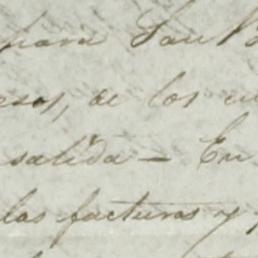 para San
de los
salida — En
las facturas y